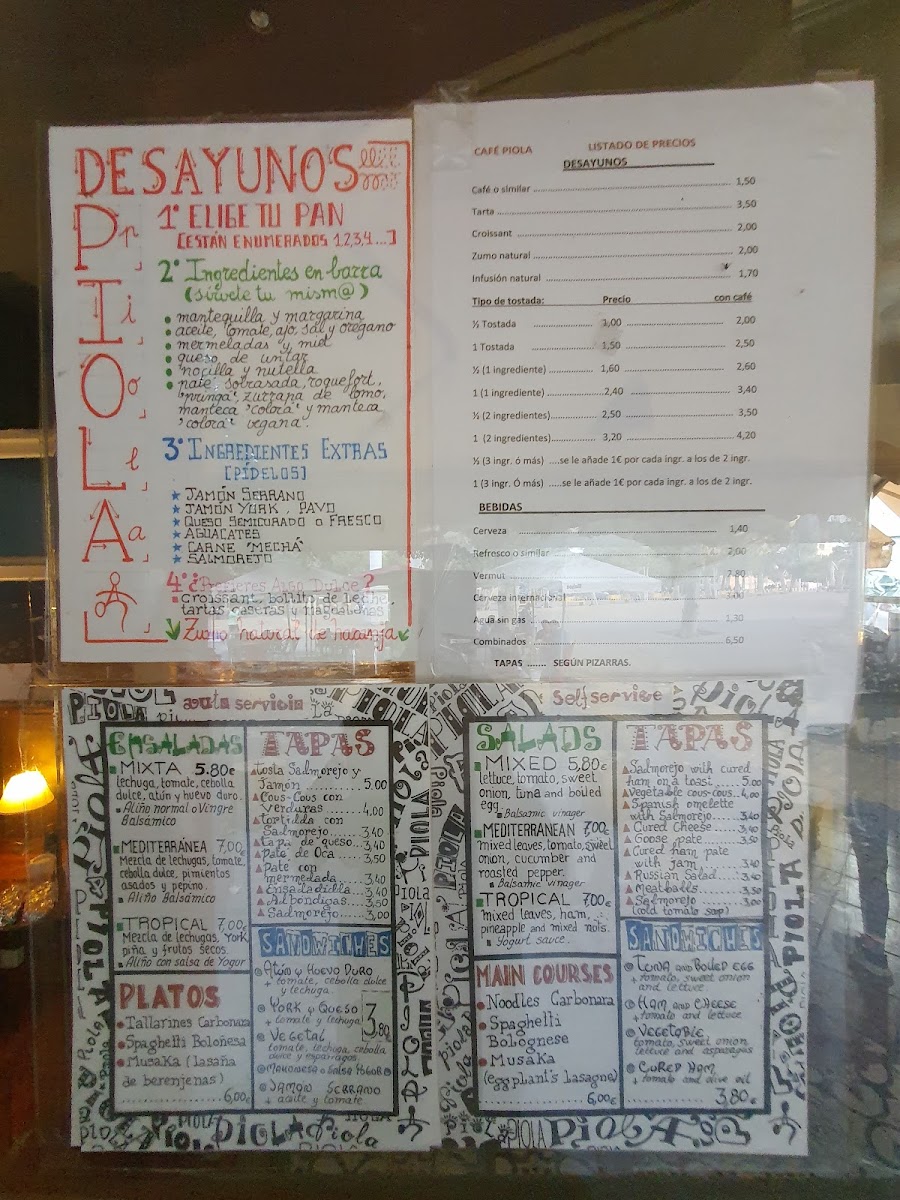 DESAYUNOS
PIOLA
Piola
1º ELIGE TU PAN
[ESTÁN ENUMERADOS 1,2,3,4...]
2º Ingredientes en barra
(sírvete tu mism@)
mantequilla y margarina
aceite, tomate, ajo, sal y orégano
mermeladas y miel
queso de untar
nocilla y nutella
paté, sobrasada, roquefort,
"pringá", zurrapa de lomo,
manteca "colorá" y manteca
"colorá" vegana.
3º INGREDIENTES EXTRAS
[PÍDELOS]
JAMÓN SERRANO
JAMÓN YORK, PAVO
QUESO SEMICURADO O FRESCO
AGUACATES
CARNE "MECHÁ"
SALMOREJO
4º ¿Prefieres Algo Dulce?
croissant, bollito de leche,
tartas caseras y magdalenas
Zumo natural de naranja
CAFÉ PIOLA LISTADO DE PRECIOS
DESAYUNOS
Café o similar 1,50
Tarta 3,50
Croissant 2,00
Zumo natural 2,00
Infusión natural 1,70
Tipo de tostada: Precio con café
½ Tostada 1,00 2,00
1 Tostada 1,50 2,50
½ (1 ingrediente) 1,60 2,60
1 (1 ingrediente) 2,40 3,40
½ (2 ingredientes) 2,50 3,50
1 (2 ingredientes) 3,20 4,20
½ (3 ingr. ó más) .....se le añade 1€ por cada ingr. a los de 2 ingr.
1 (3 ingr. Ó más) .....se le añade 1€ por cada ingr. a los de 2 ingr.
BEBIDAS
Cerveza 1,40
Refresco o similar 2,00
Vermut 2,80
Cerveza internacional 3,00
Agua sin gas 1,30
Combinados 6,50
TAPAS ....... SEGÚN PIZARRAS.
auto servicio
ENSALADAS
MIXTA 5.80€
lechuga, tomate, cebolla
dulce, atún y huevo duro.
Aliño normal o Vingre
Balsámico
MEDITERRÁNEA 7,00€
Mezcla de lechugas, tomate
cebolla dulce, pimientos
asados y pepino.
Aliño Balsámico
TROPICAL 7,00€
Mezcla de lechugas, York
piña y frutos secos.
Aliño con salsa de Yogur
PLATOS
Tallarines Carbonara
Spaghetti Boloñesa
Musaka (lasaña
de berenjenas)
6,00€
TAPAS
tosta Salmorejo y
Jamón 5.00
Cous-Cous con
Verduras 4,00
tortilla con
Salmorejo 3,40
tapa de queso 3,40
Paté de Oca 3,50
Paté con
mermelada 3,40
Ensaladilla 3,40
Albóndigas 3,50
Salmorejo 3,00
SANDWICHES
ATÚN Y HUEVO DURO
+ tomate, cebolla dulce
y lechuga.
YORK Y QUESO
+ tomate y lechuga
VEGETAL
tomate, lechuga, cebolla
dulce y esparragos
MAHONESA o SALSA YOGUR
JAMÓN SERRANO
+ aceite y tomate
3,80€
Self service
SALADS
MIXED 5,80€
lettuce, tomato, sweet
onion, tuna and boiled
egg.
Balsamic vinager
MEDITERRANEAN 7,00€
mixed leaves, tomato, sweet
onion, cucumber and
roasted pepper.
Balsamic vinager
TROPICAL 7,00€
mixed leaves, ham,
pineapple and mixed nots.
Yogurt sauce.
MAIN COURSES
Noodles Carbonara
Spaghetti
Bolognese
Musaka
(eggplant's lasagne)
6,00€
TAPAS
Salmorejo with cured
ham on a toast 5.00
Vegetable cous-cous 4,00
Spanish omelette
with Salmorejo 3,40
Cured Cheese 3,40
Goose pate 3,50
Cured ham pate
with jam 3,40
Russian Salad 3,40
Meatballs 3,50
Salmorejo 3,00
(cold tomato soup)
SANDWICHES
TUNA AND BOILED EGG
+ tomato, sweet onion
and lettuce.
HAM AND CHEESE
+ tomato and lettuce
VEGETABLE
tomato, sweet onion,
lettuce and asparagus
CURED HAM
+ tomato and olive oil
3,80€